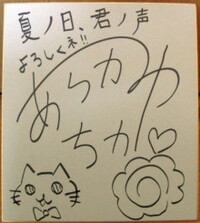 夏ノ日、君ノ声
よろしくネ!!
あらかわ
ちか♡